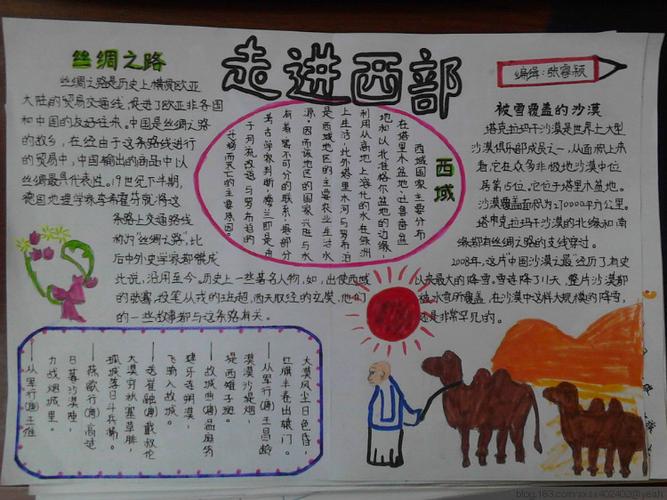 走进西部
编辑：张睿颖
丝绸之路
丝绸之路是历史上横贯欧亚
大陆的贸易交通线，促进了欧亚非各国
和中国的友好往来。中国是丝绸之路
的故乡，在经由了这条路线进行
的贸易中，中国输出的商品中以
丝绸最具代表性。19世纪下半期，
德国地理学家李希霍芬就将这
条路上交通路线
称为“丝绸之路”，此
后中外史学家都赞成
此说，沿用至今。历史上一些著名人物，如，出使西域
的张骞，投笔从戎的班超，西天取经的玄奘，他们
的一些故事都与这条路有关。
西域
西域国家主要分布
在塔里木盆地、吐鲁番盆
地和以北准格尔盆地的边缘，
利用从高地上溶化的水在绿洲
上生活，此外塔里木河与罗布泊
是西域地区的主要农业生活水
源，因而该地区的国家兴旺与水
有着密不可分的联系，最部分
考古学家判断，楼兰即是由
于河流改道与罗布泊的
干涸而衰亡的主要原因。
被雪覆盖的沙漠
塔克拉玛干沙漠是世界上大型
沙漠俱乐部成员之一，从面积上来
看，它在众多非极地沙漠中位
居第15位，它位于塔里木盆地。
沙漠覆盖面积为270000平方公里。
塔克拉玛干沙漠的北缘和南
缘都有丝绸之路的支线穿过。
2008年，这片中国沙漠最经历了有史
以来最大的降雪，雪连降了11天，整片沙漠都
被冰雪所覆盖，在沙漠中这样大规模的降雪，
还是非常罕见的。
大漠风尘日色昏，
红旗半卷出辕门。
——从军行(唐)王昌龄
漠漠沙堤烟，
堤西雉子斑。
——故城曲(唐)温庭筠
建牙连朔漠，
飞骑入故城。
——送崔融(唐)戴叔伦
大漠穷秋塞草腓，
孤城落日斗兵稀。
——燕歌行(唐)高适
日暮沙漠陲，
力战烟尘里。
——从军行(唐)王维